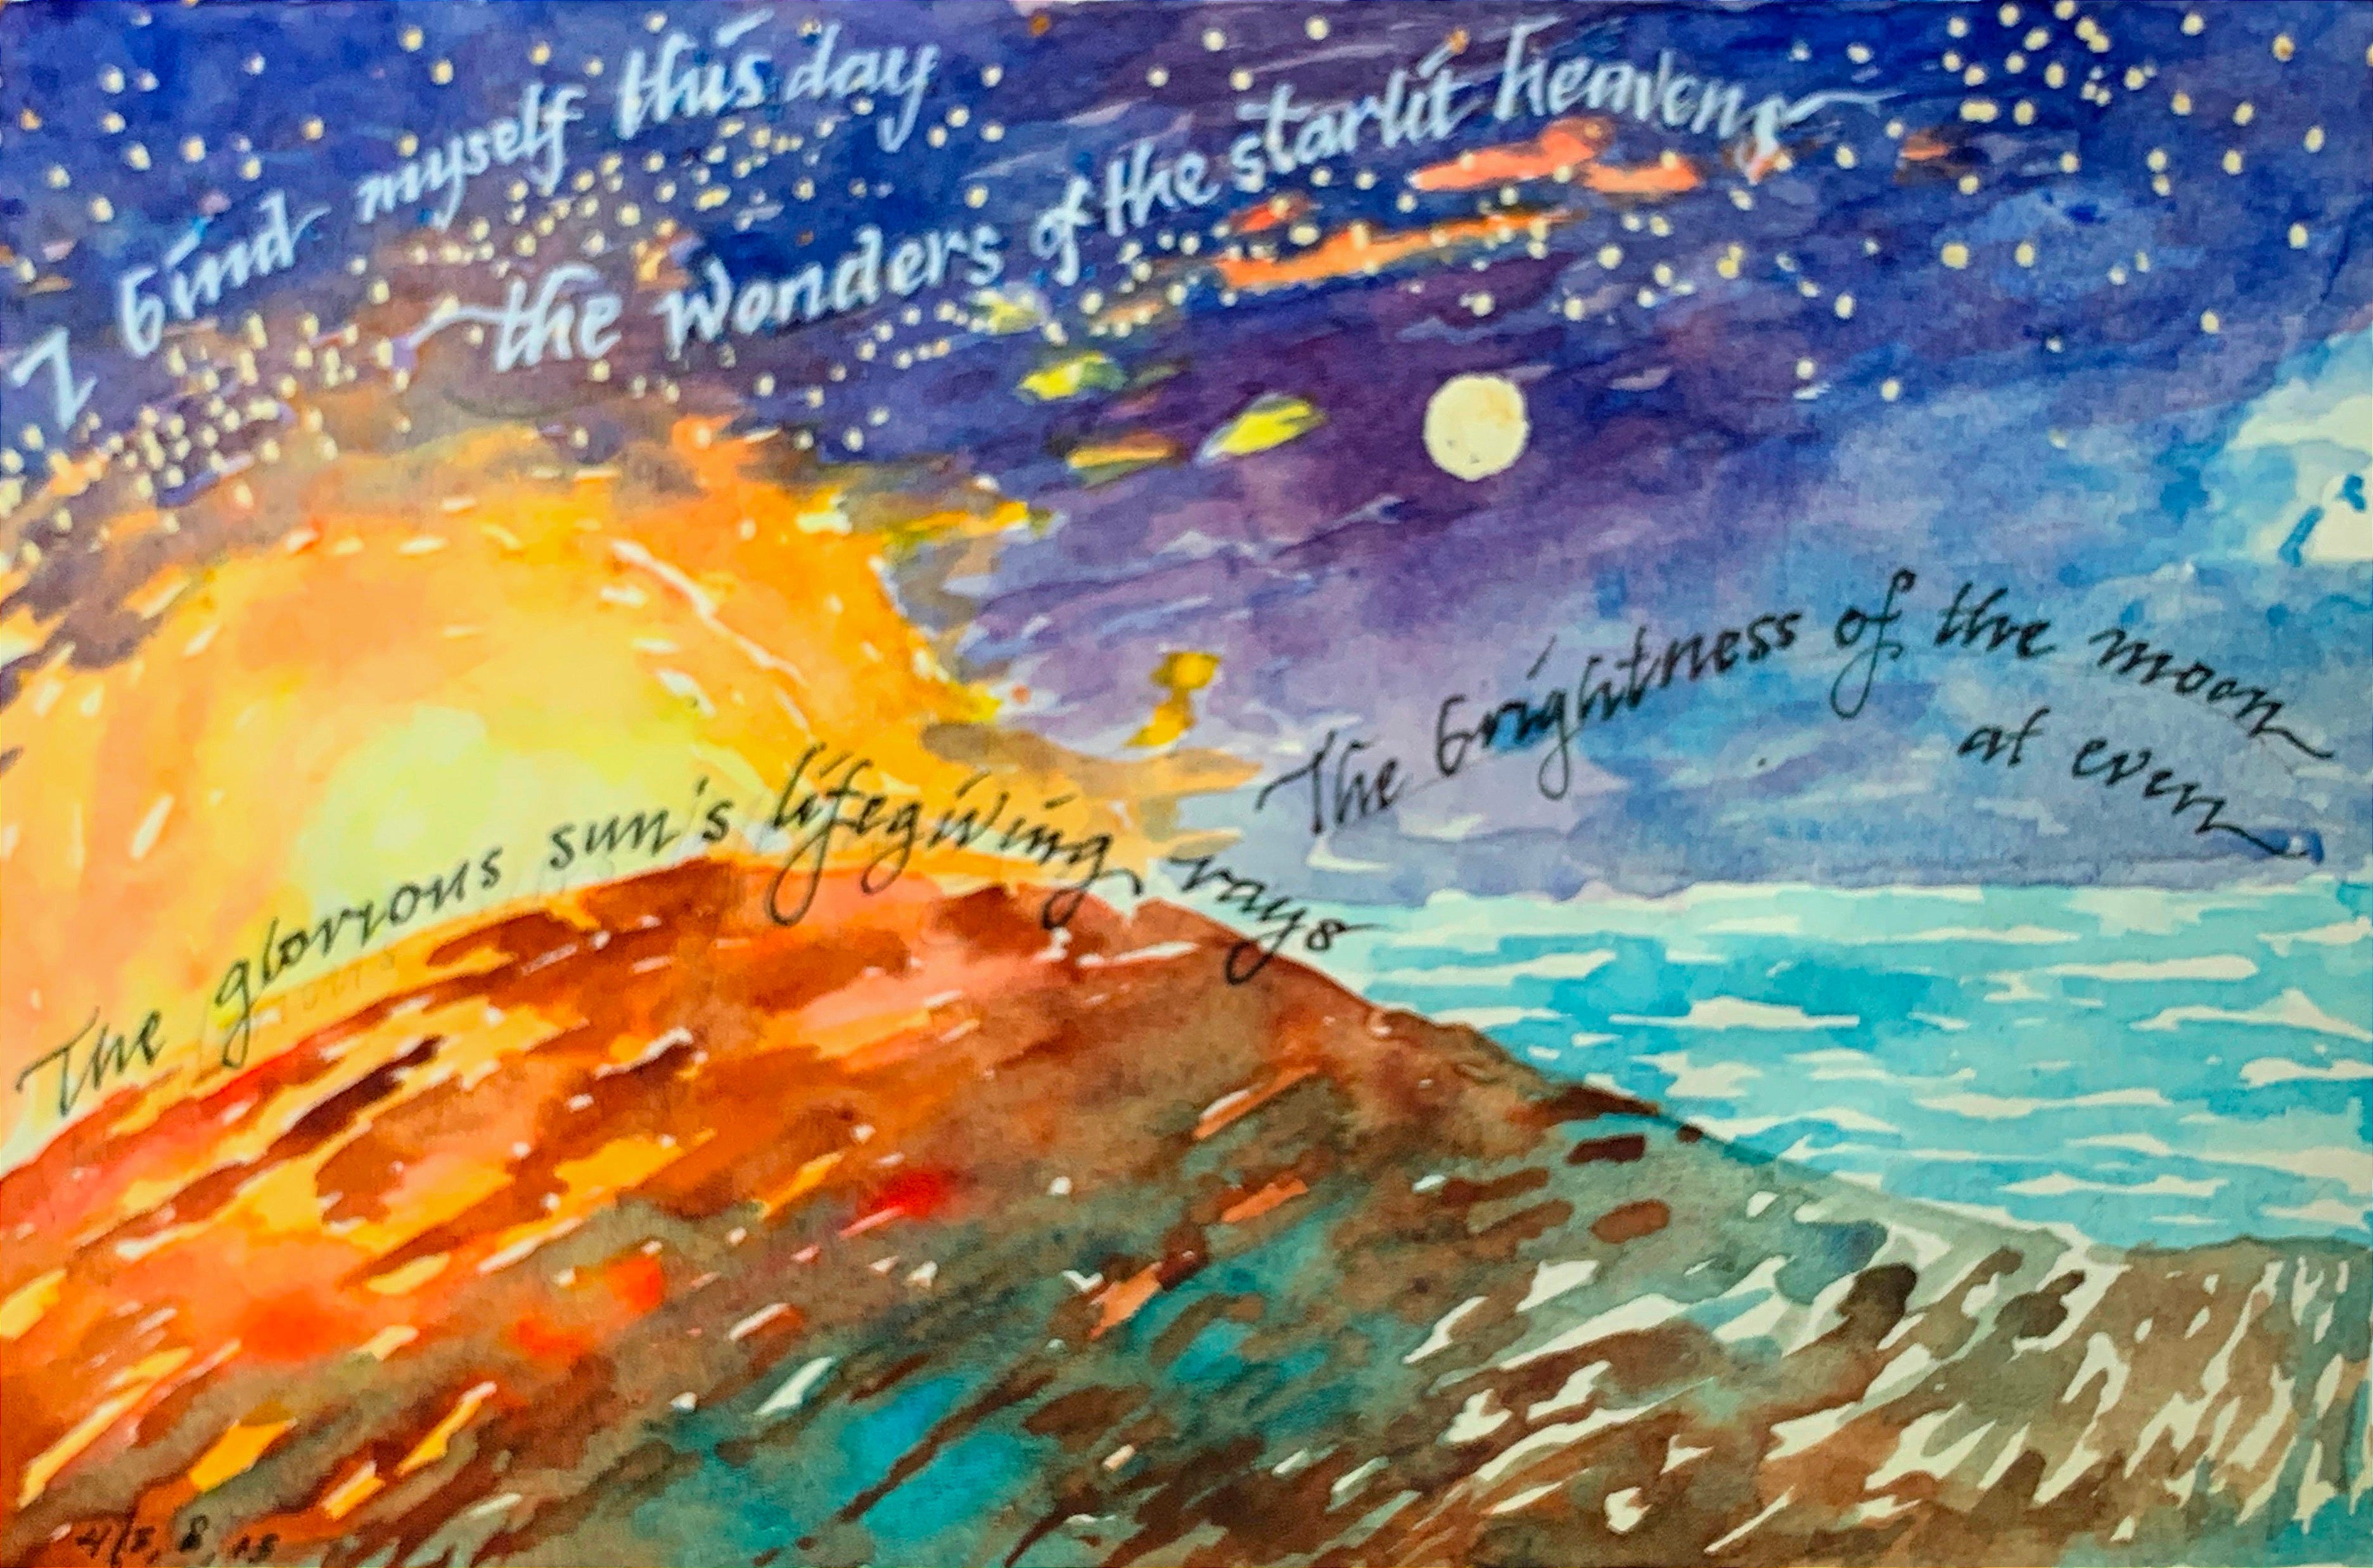 I bind myself this day
the wonders of the starlit heavens
The brightness of the moon
at even
The glorious sun's lifegiving rays